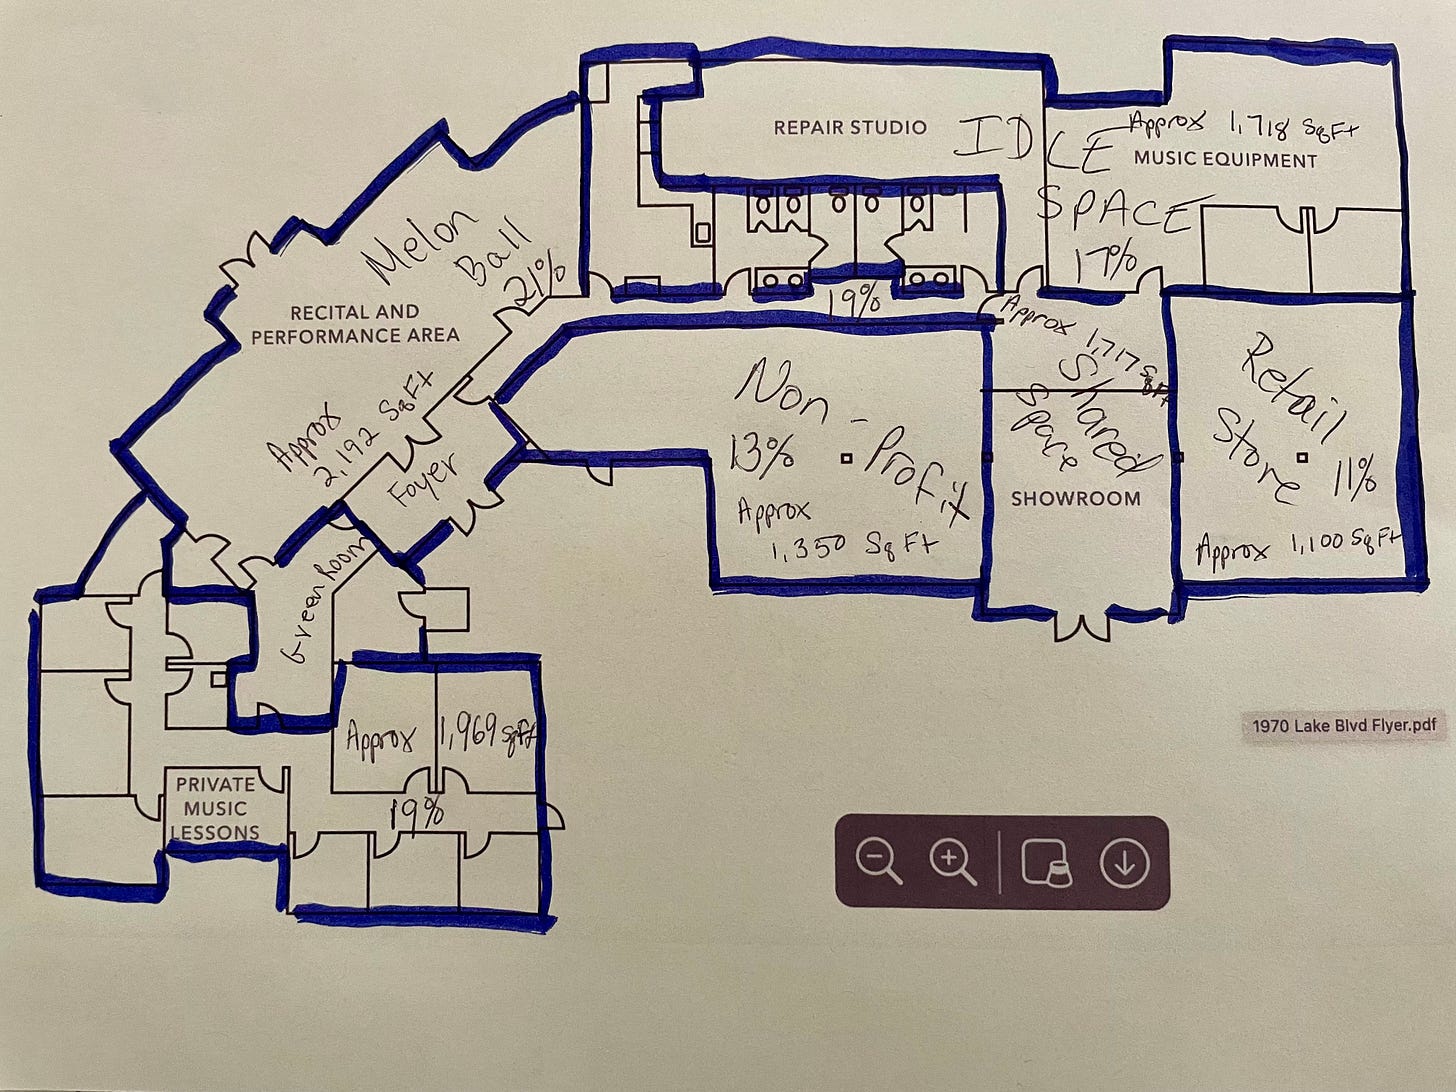 REPAIR STUDIO
IDLE
SPACE
17%
Approx 1,718 SqFt
MUSIC EQUIPMENT
Melon
Ball
21%
RECITAL AND
PERFORMANCE AREA
Approx
2,192 SqFt
Foyer
19%
Approx 1,717 SqFt
Shared
Space
SHOWROOM
Non-Profit
13%
Approx
1,350 SqFt
Retail
Store
11%
Approx 1,100 SqFt
Green Room
Approx 1,969 SqFt
19%
PRIVATE
MUSIC
LESSONS
1970 Lake Blvd Flyer.pdf